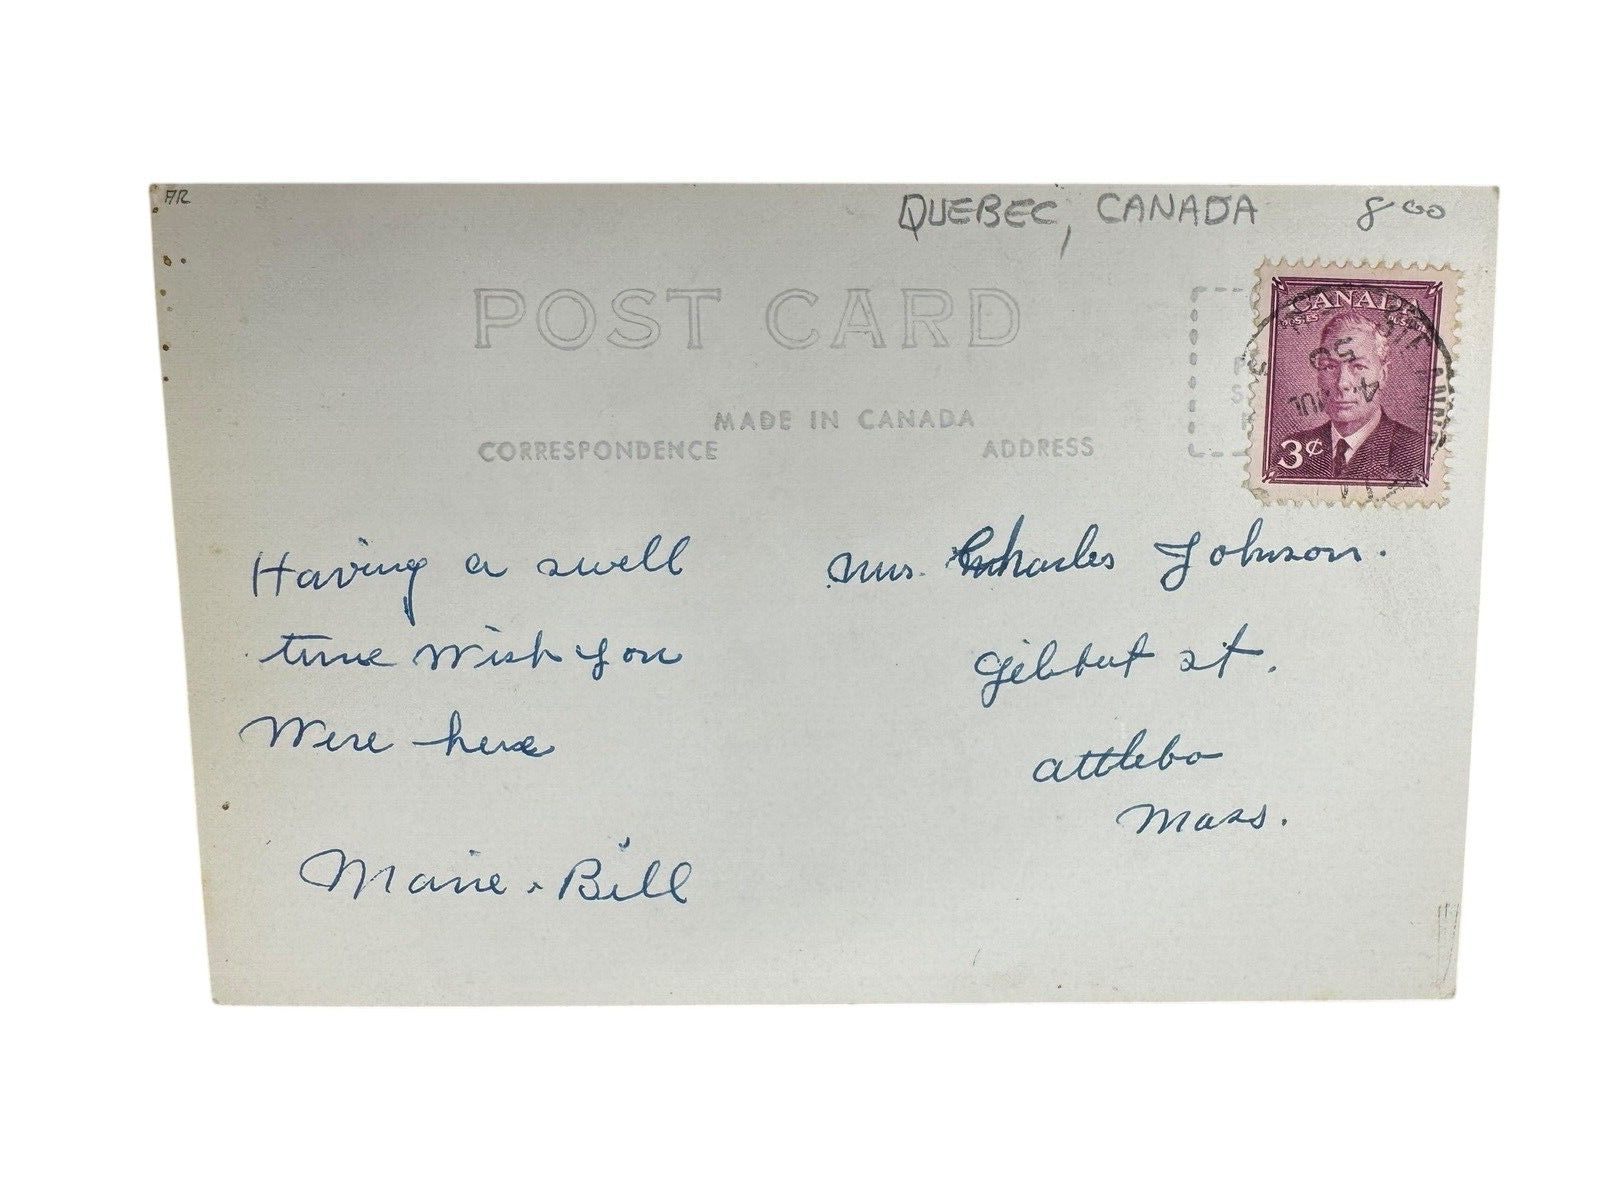 AR
QUEBEC, CANADA 8 00
POST CARD
CANADA
POSTES POSTAGE
JUL 4 50
3¢
MADE IN CANADA
CORRESPONDENCE ADDRESS
Having a swell
time Wish you
Were here
Marie & Bill
Mrs. Charles Johnson.
Gilbert st.
Attlebo
Mass.